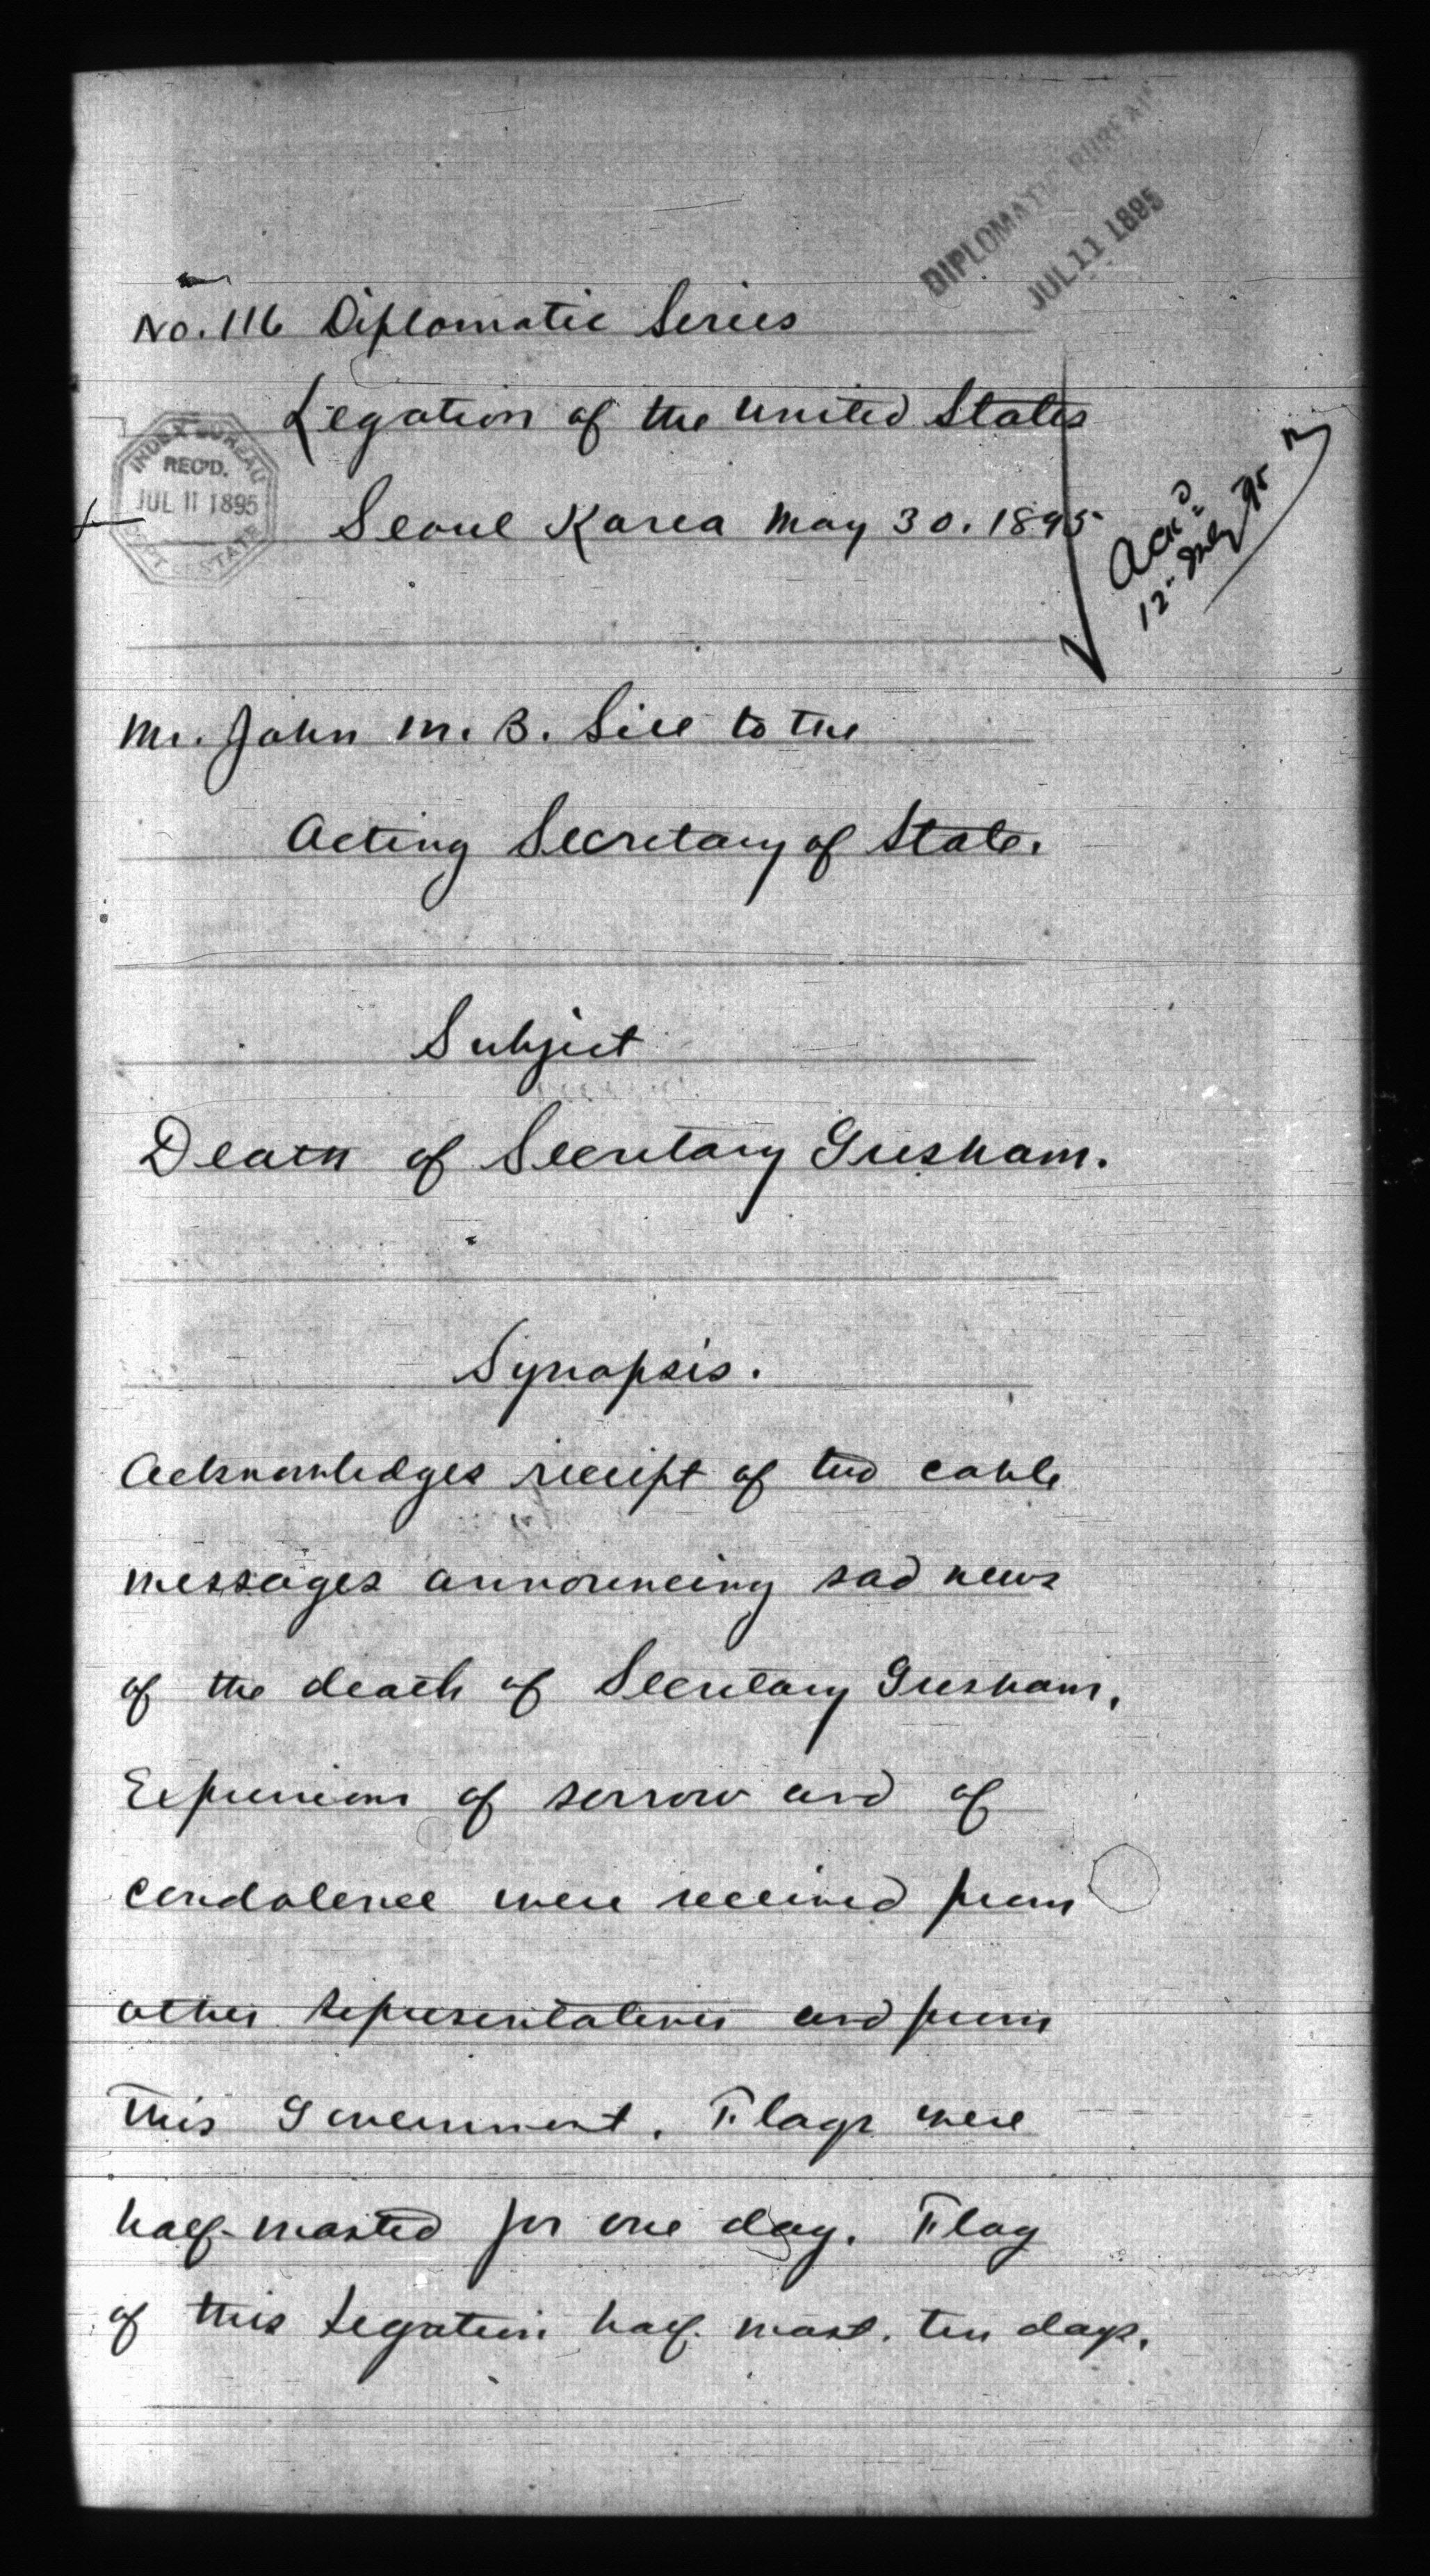 DIPLOMATIC BUREAU
JUL 11 1895
No. 116 Diplomatic Series
Legation of the United States
INDEX BUREAU
REC'D.
JUL 11 1895
DEPT OF STATE
Seoul Korea May 30. 1895
Ack'd
12" July '95
Mr. John M. B. Sill to the
Acting Secretary of State.
Subject
Death of Secretary Gresham.
Synopsis.
Acknowledges receipt of two cable
messages announcing sad news
of the death of Secretary Gresham.
Expressions of sorrow and of
condolence were received from
other representatives and from
this Government. Flags were
half-masted for one day. Flag
of this Legation half-mast. ten days.